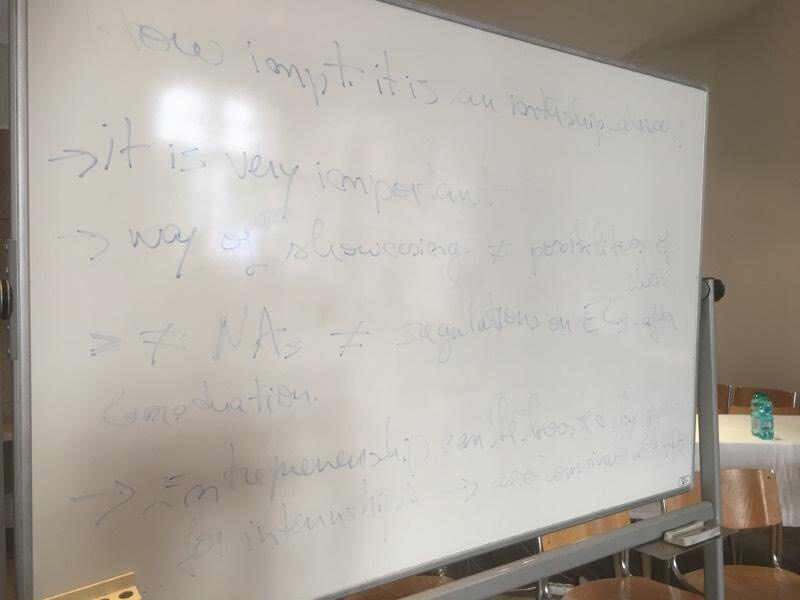 How impt. it is an intership abroad?
→ it is very important
→ way of showcasing ≠ possibilities of
> ≠ NAs ≠ regulations on ECs after
Graduation.
→ Entrepreneurship can be boosted by
for internships →